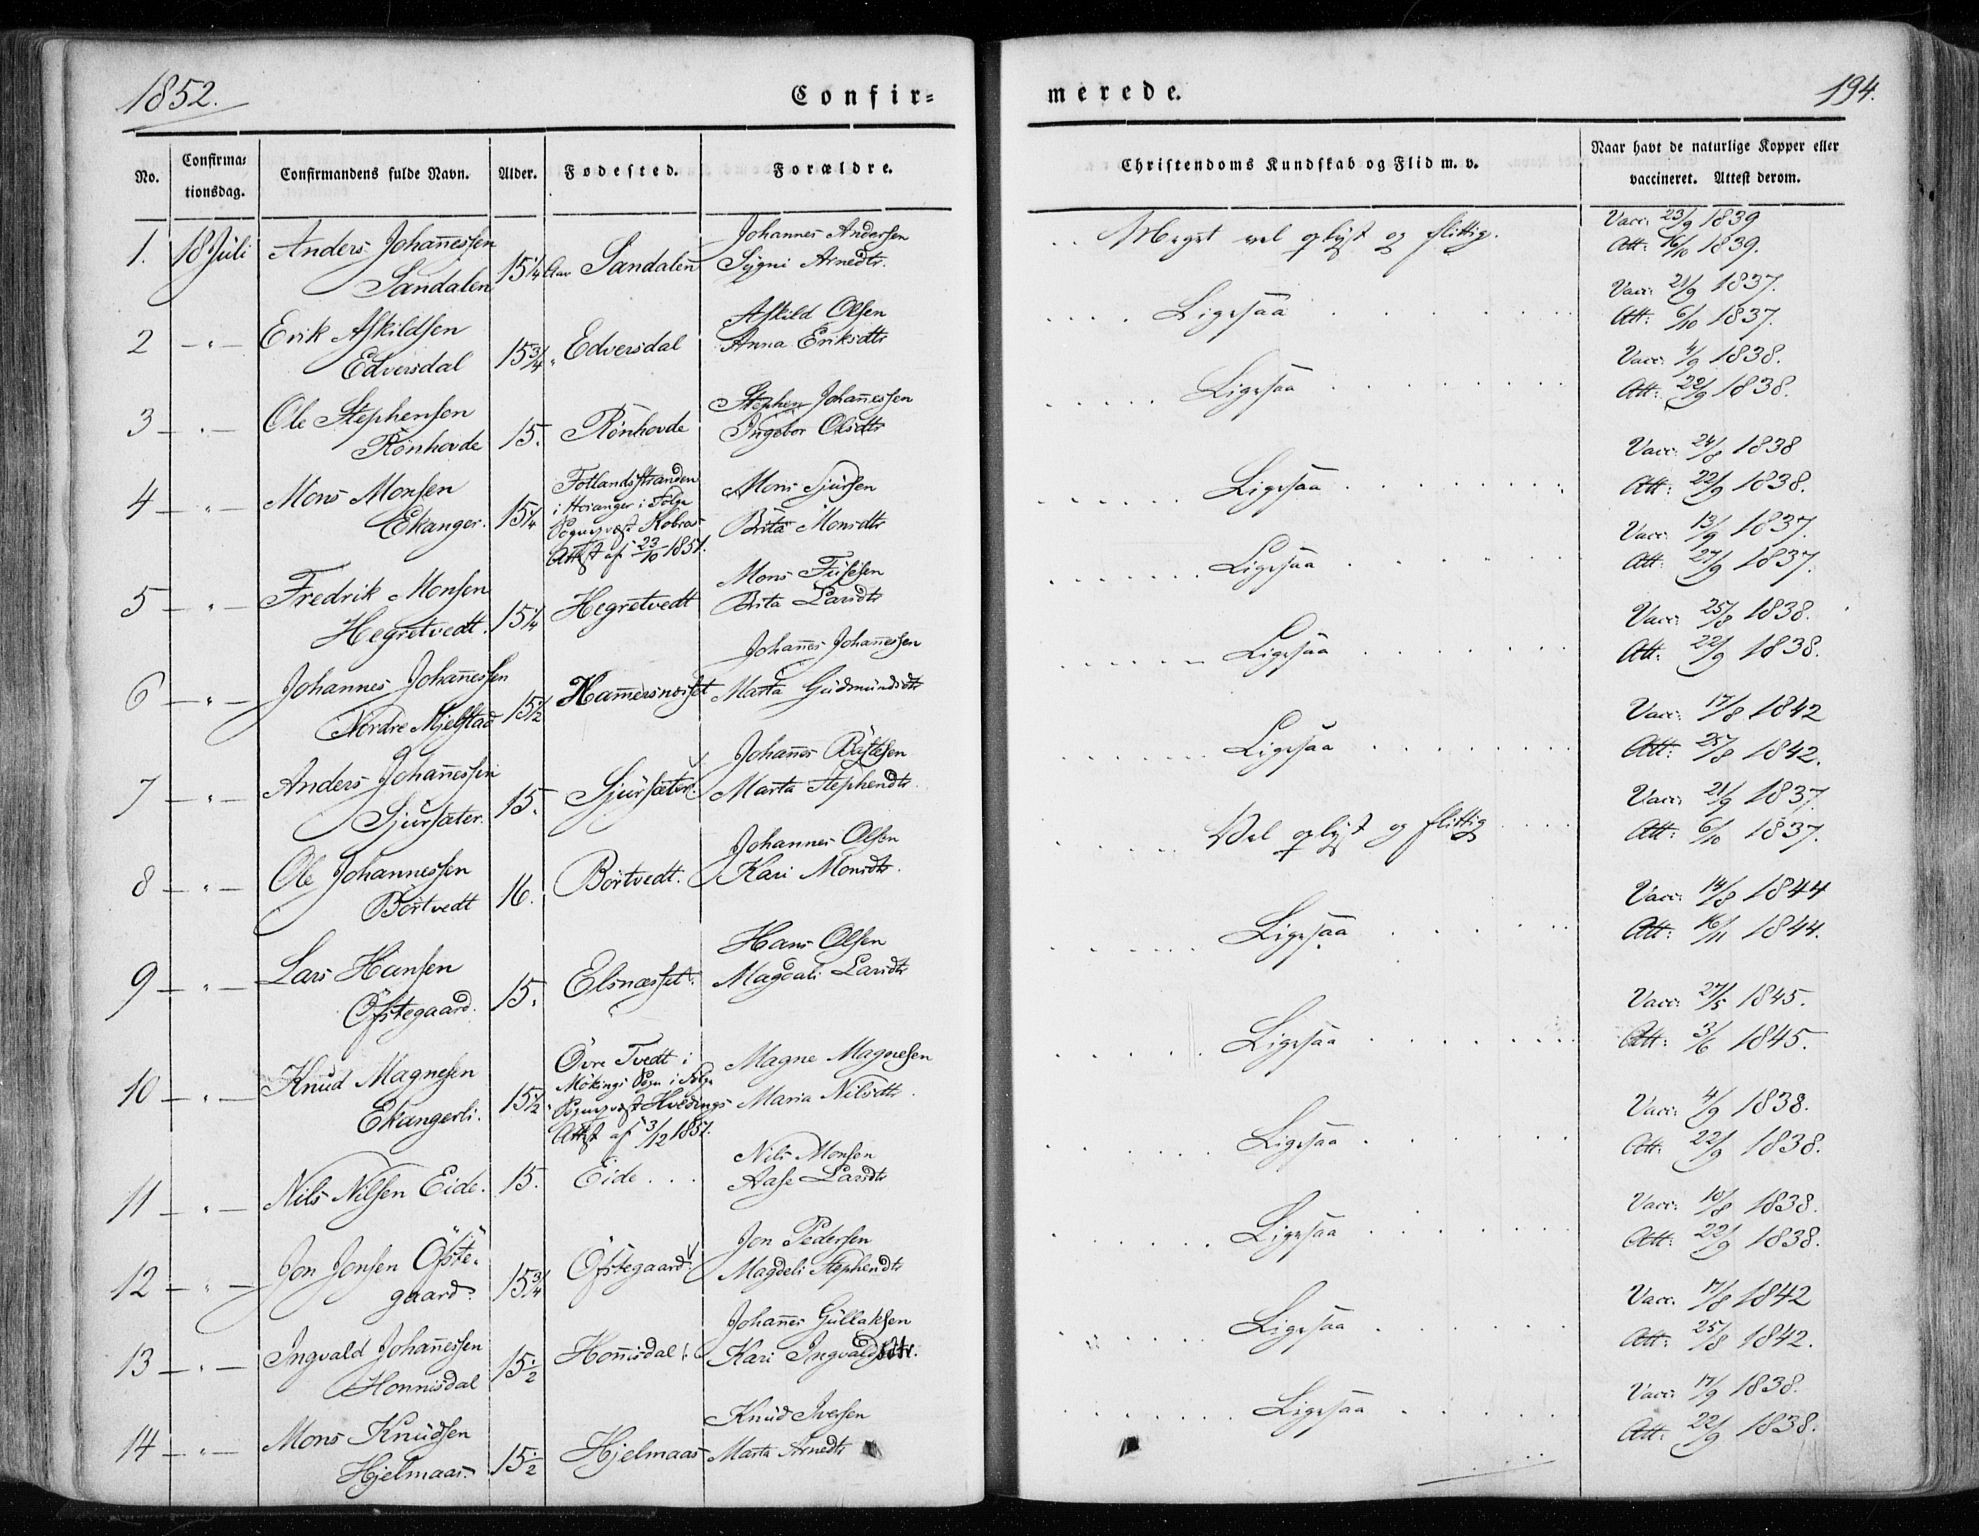 1852.
Confir=
merede.
194.
No.
Confirma=
tionsdag.
Confirmandens fulde Navn.
Alder.
Fødested.
Forældre.
Christendoms Kundskab og Flid m. v.
Naar havt de naturlige Kopper eller
vaccineret. Attest derom.
1. 18 Juli Anders Johanessen
Sandalen
15 1/4 Aar
Sandalen
Johannes Andersen
Sygni Arnedtr.
Meget vel oplyst og flittig.
Vacc: 23/9 1839
Att: 16/10 1839.
2 — " — Erik Askildsen
Edversdal
15 3/4
Edversdal
Askild Olsen
Anna Eriksdtr
Ligesaa
Vacc: 21/9 1837.
Att: 6/10 1837.
3 — " — Ole Stephensen
Rönhovde
15.
Rönhovde
Stephen Johanessen
Ingebor Olsdtr
Ligesaa
Vacc: 4/9 1838.
Att: 22/9 1838.
4 — " — Mons Monsen
Ekanger.
15 1/4
Fotlandsstranden
i Hosanger i Følge
Sognepræst
Attest af 23/10 1851.
Mons Sjursen
Brita Monsdtr
Ligesaa
Vacc: 24/8 1838
Att: 22/9 1838.
5 — " — Fredrik Monsen
Hegretvedt.
15 1/4
Hegretvedt
Mons
Brita Larsdtr
Ligesaa
Vacc: 13/9 1837.
Att: 27/9 1837.
6 — " — Johannes Johanessen
Nordre Mjelstad
15 1/2
Hamersnæset
Johanes Johanessen
Marta Gudmundsdtr
Ligesaa
Vacc: 25/8 1838.
Att: 22/9 1838.
7 — " — Anders Johanessen
Sjursæter.
15.
Sjursæter.
Johanes
Marta Stephendtr.
Ligesaa
Vacc: 17/8 1842
Att: 25/8 1842.
8 — " — Ole Johannessen
Börtvedt
16.
Börtvedt.
Johannes Olsen
Kari Monsdtr.
Vel oplyst og flittig
Vacc: 21/9 1837.
Att: 6/10 1837.
9 — " — Lars Hansen
Öfstegaard.
15.
Elsnæsset.
Hans Olsen
Magdali Larsdtr
Ligesaa
Vacc: 14/8 1844
Att: 16/11 1844.
10 — " — Knud Magnesen
Ekangerli.
15 1/2
Övre Tvedt i
Mökings Sogn i Følge
Sognepræst Hvedings
Attest af 3/12 1851.
Magne Magnesen
Maria Nilsdtr.
Ligesaa
Vacc: 27/5 1845.
Att: 3/6 1845.
11 — " — Nils Nilsen Eide.
15.
Eide . . .
Nils Monsen
Aase Larsdtr
Ligesaa
Vacc: 4/9 1838.
Att: 22/9 1838.
12 — " — Jon Jonsen Öfste=
gaard.
15 3/4
Öfstegaard.
Jon Pedersen
Magdeli Stephendtr
Ligesaa
Vacc: 10/8 1838.
Att: 22/9 1838.
13 — " — Ingvald Johanessen
Honnisdal
15 1/2
Honisdal.
Johanes Gullaksen
Kari Ingvaldsdtr.
Ligesaa
Vacc. 17/8 1842
Att: 25/8 1842.
14 — " — Mons Knudsen
Hjelmaas.
15 1/2
Hjelmaas
Knud Iversen
Marta Arnedtr
Ligesaa
Vacc: 17/9 1838.
Att: 22/9 1838.